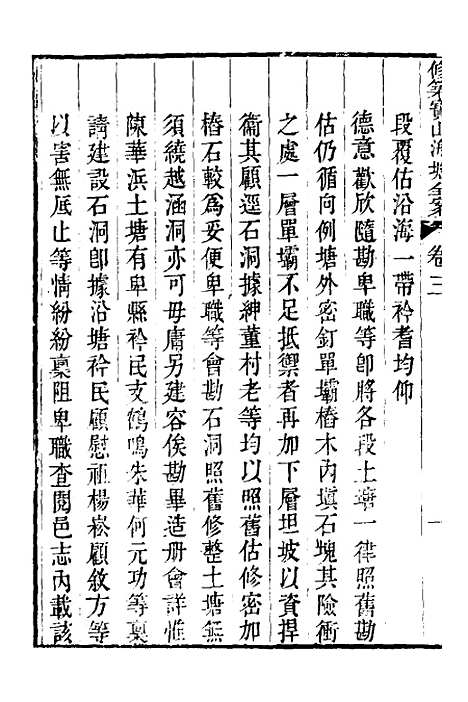 修築寶山海塘全案 卷三 一
段覆估沿海一帶衿耆均仰
德意歡欣隨勘卑職等卽將各段土塘一律照舊勘
估仍循向例塘外密釘單壩樁木內塡石塊其險衝
之處一層單壩不足抵禦者再加下層坦坡以資捍
衞其顧涇石洞據紳董村老等均以照舊估修密加
樁石較爲妥便卑職等會勘石洞照舊修整土塘無
須繞越涵洞亦可毋庸另建容俟勘畢造册會詳惟
陳華浜土塘有卑縣衿民支鶴鳴朱華何元功等稟
請建設石洞卽據沿塘衿民顧慰祖楊崧顧敘方等
以害無底止等情紛紛稟阻卑職查閱邑志內載該